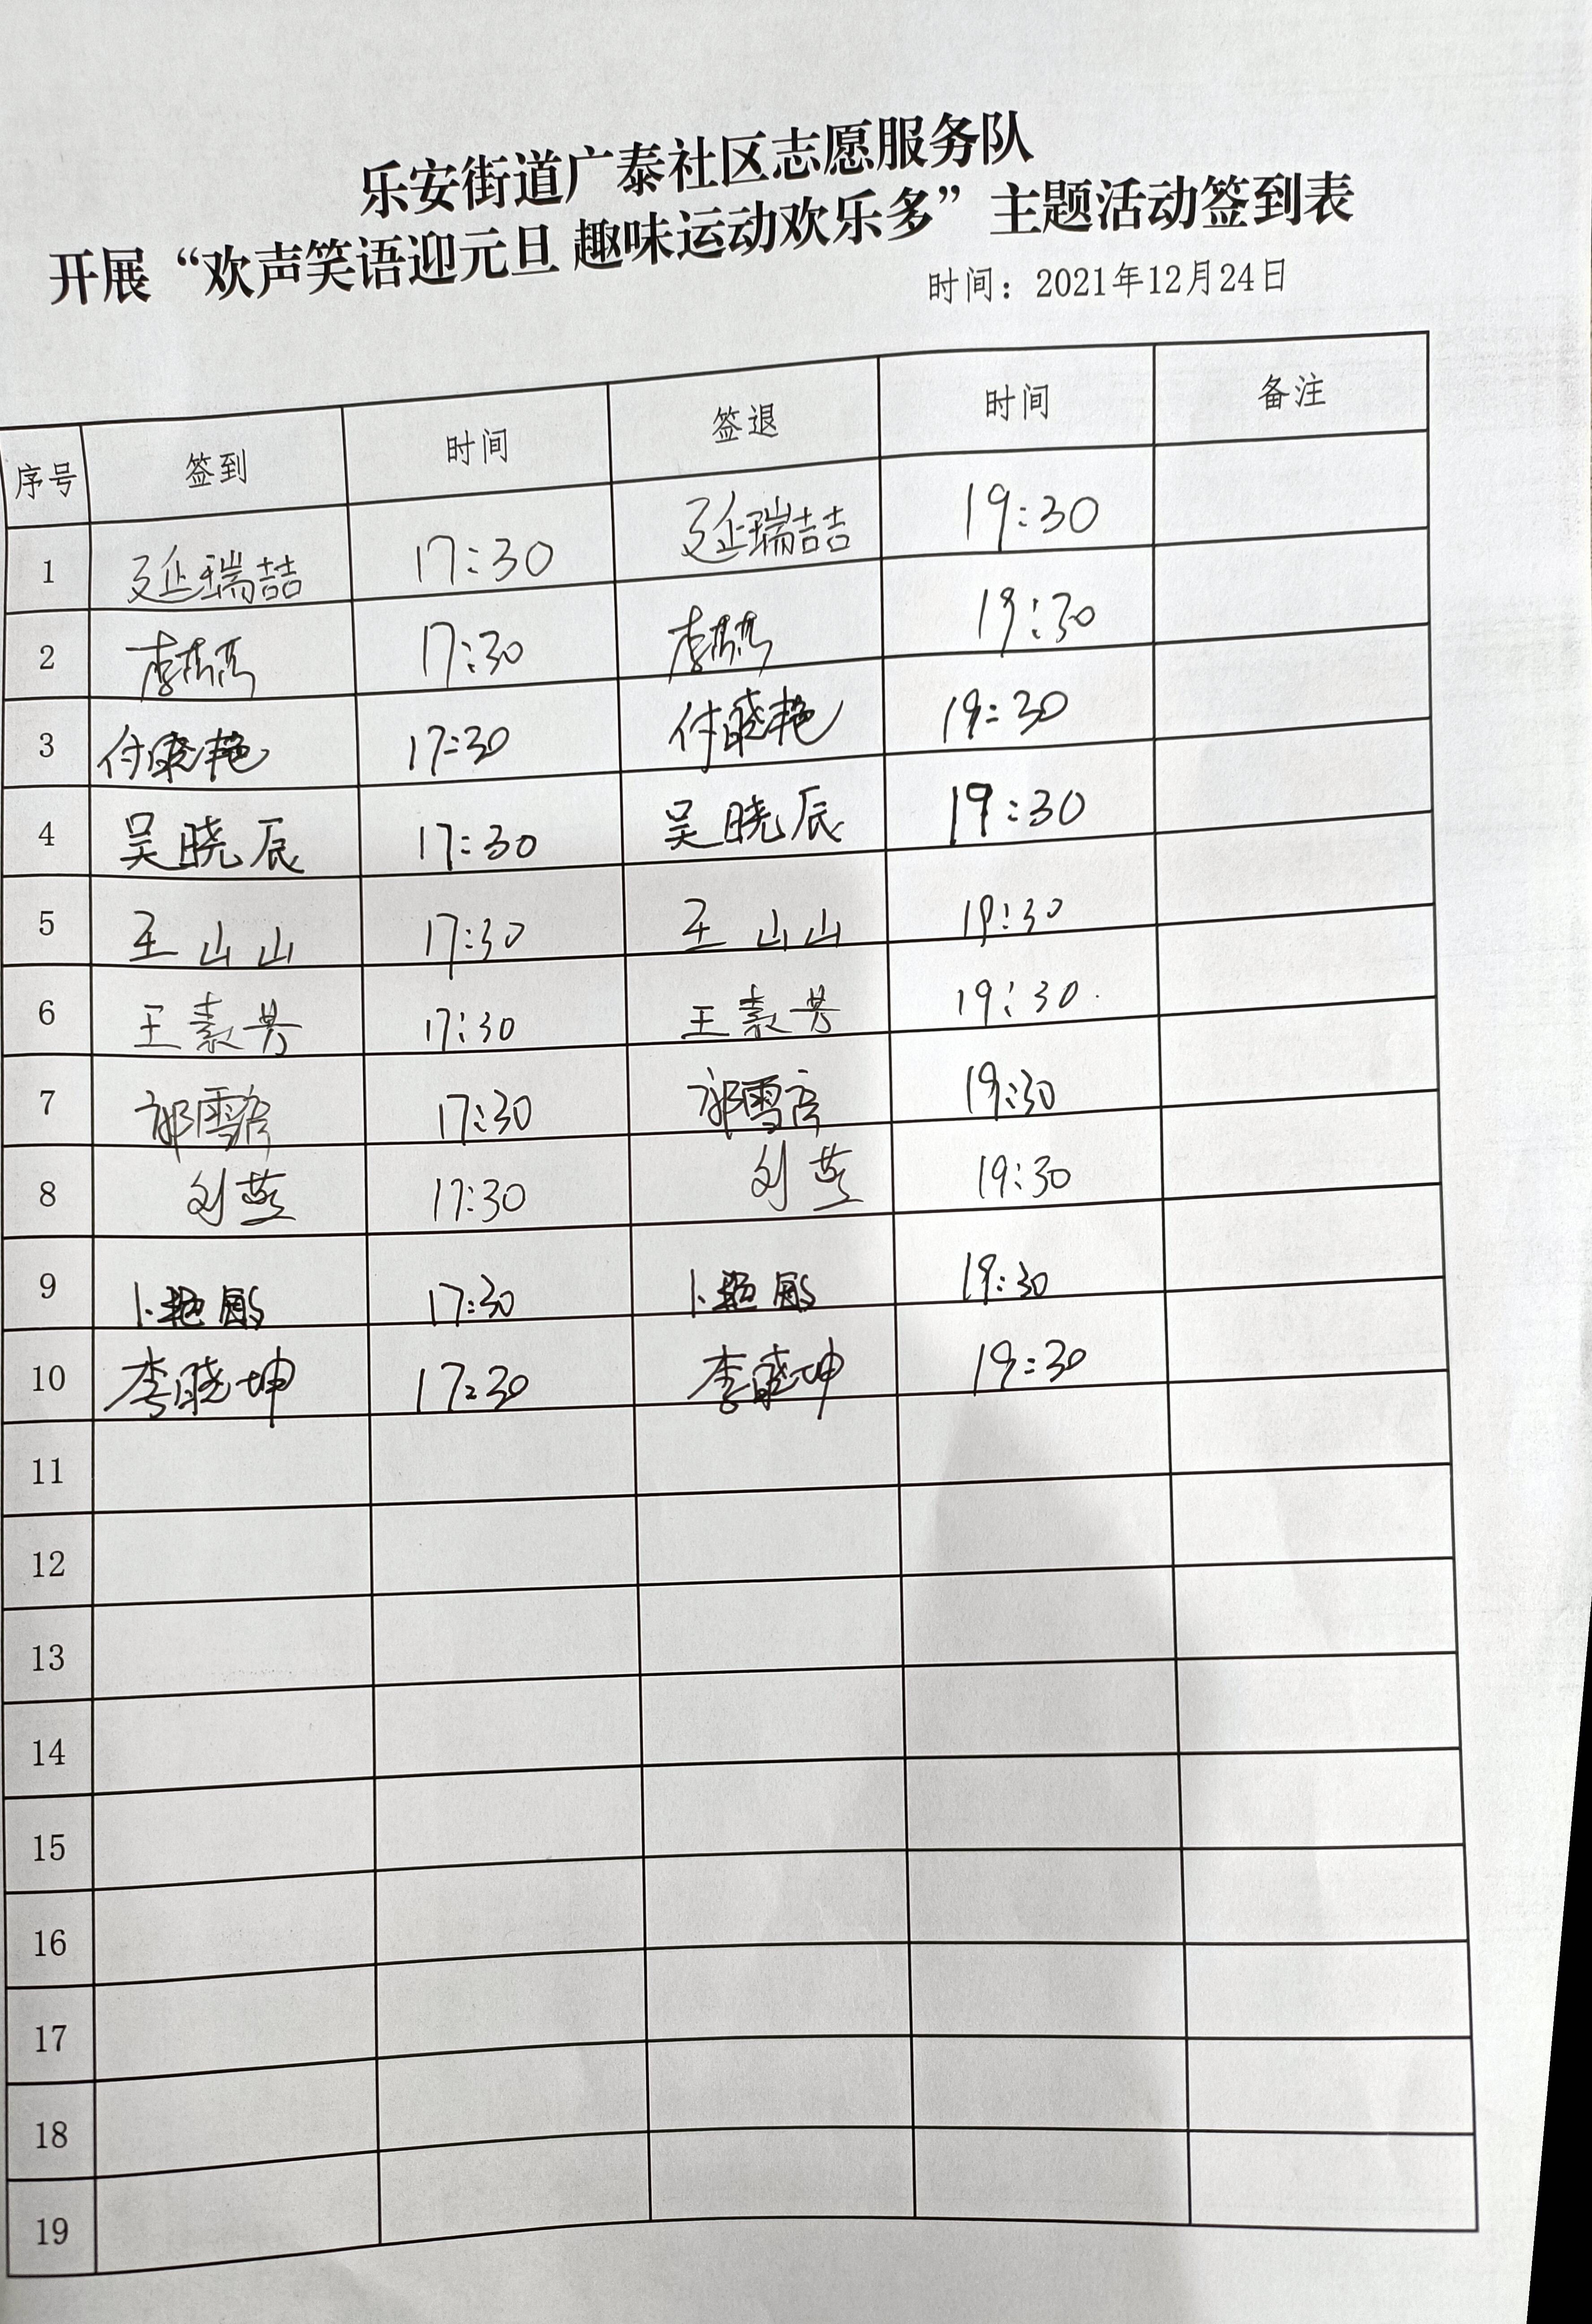 乐安街道广泰社区志愿服务队
开展“欢声笑语迎元旦 趣味运动欢乐多”主题活动签到表
时间：2021年12月24日
序号 签到 时间 签退 时间 备注
1 延瑞喆 17:30 延瑞喆 19:30
2 李 17:30 李 19:30
3 付晓艳 17:30 付晓艳 19:30
4 吴晓辰 17:30 吴晓辰 19:30
5 王山山 17:30 王山山 19:30
6 王素芳 17:30 王素芳 19:30
7 郭雪 17:30 郭雪 19:30
8 刘燕 17:30 刘燕 19:30
9 卜艳 17:30 卜艳 19:30
10 李晓坤 17:30 李晓坤 19:30
11
12
13
14
15
16
17
18
19